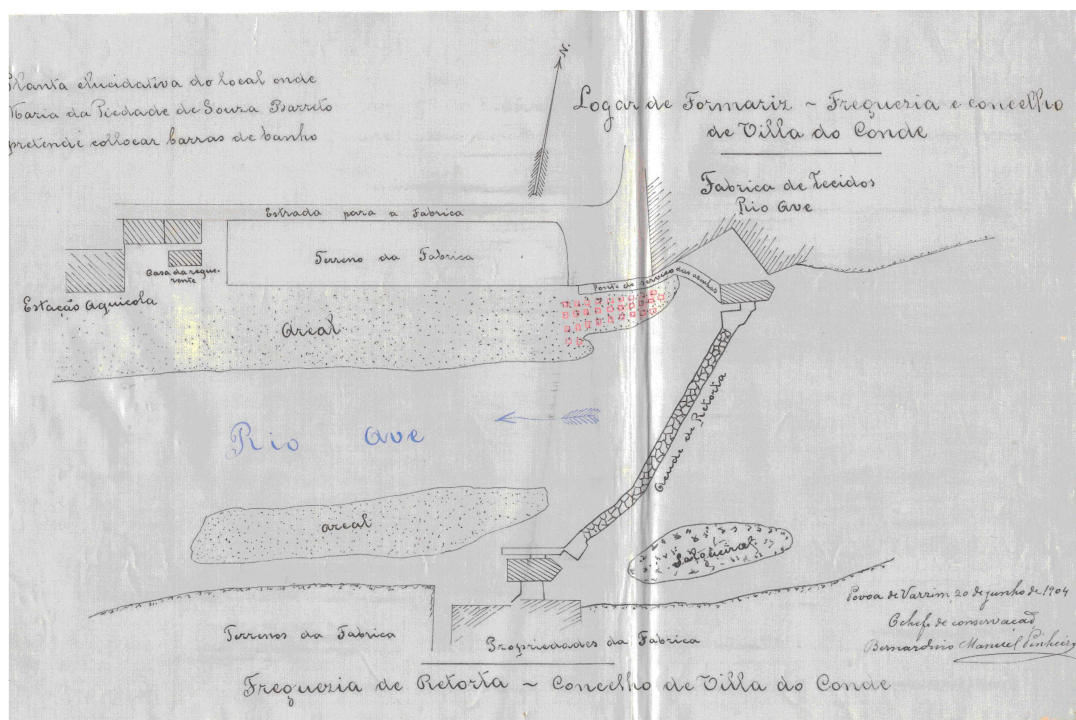 Planta elucidativa do local onde
Maria da Piedade de Souza Barreto
pretende collocar barras de banho
N.
Logar de Formariz ~ Freguezia e concelho
de Villa do Conde
Fabrica de Tecidos
Rio Ave
Estrada para a Fabrica
Terreno da Fabrica
Casa da reque-
rente
Estação Aquicola
Ponte de serviço das azenhas
Areal
Rio Ave
Açude de Retorta
areal
Terrenos da Fabrica
Propriedades da Fabrica
Povoa de Varzim, 20 de junho de 1904
O chefe de conservação
Bernardino Manuel Pinheiro
Freguezia de Retorta ~ Concelho de Villa do Conde